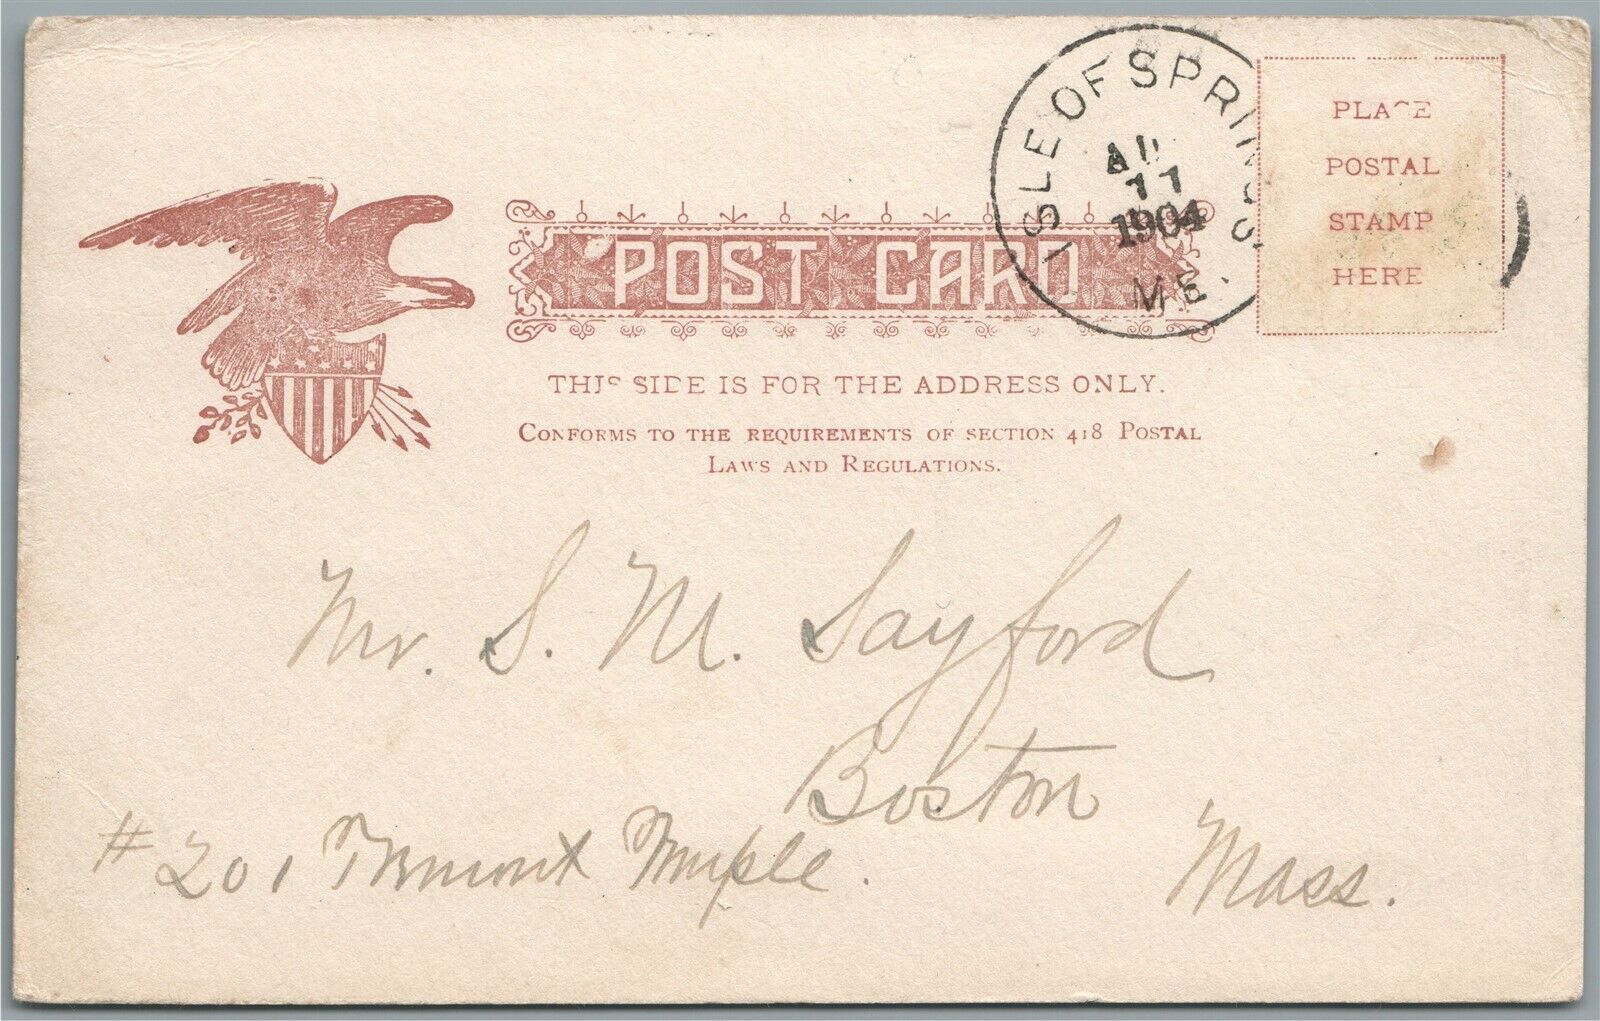 ISLE OF SPRINGS
11
1904
ME.
PLACE
POSTAL
STAMP
HERE
POST CARD
THIS SIDE IS FOR THE ADDRESS ONLY.
CONFORMS TO THE REQUIREMENTS OF SECTION 418 POSTAL
LAWS AND REGULATIONS.
Mr. S. M. Sayford
Boston
Mass.
# 201 Tremont Temple.